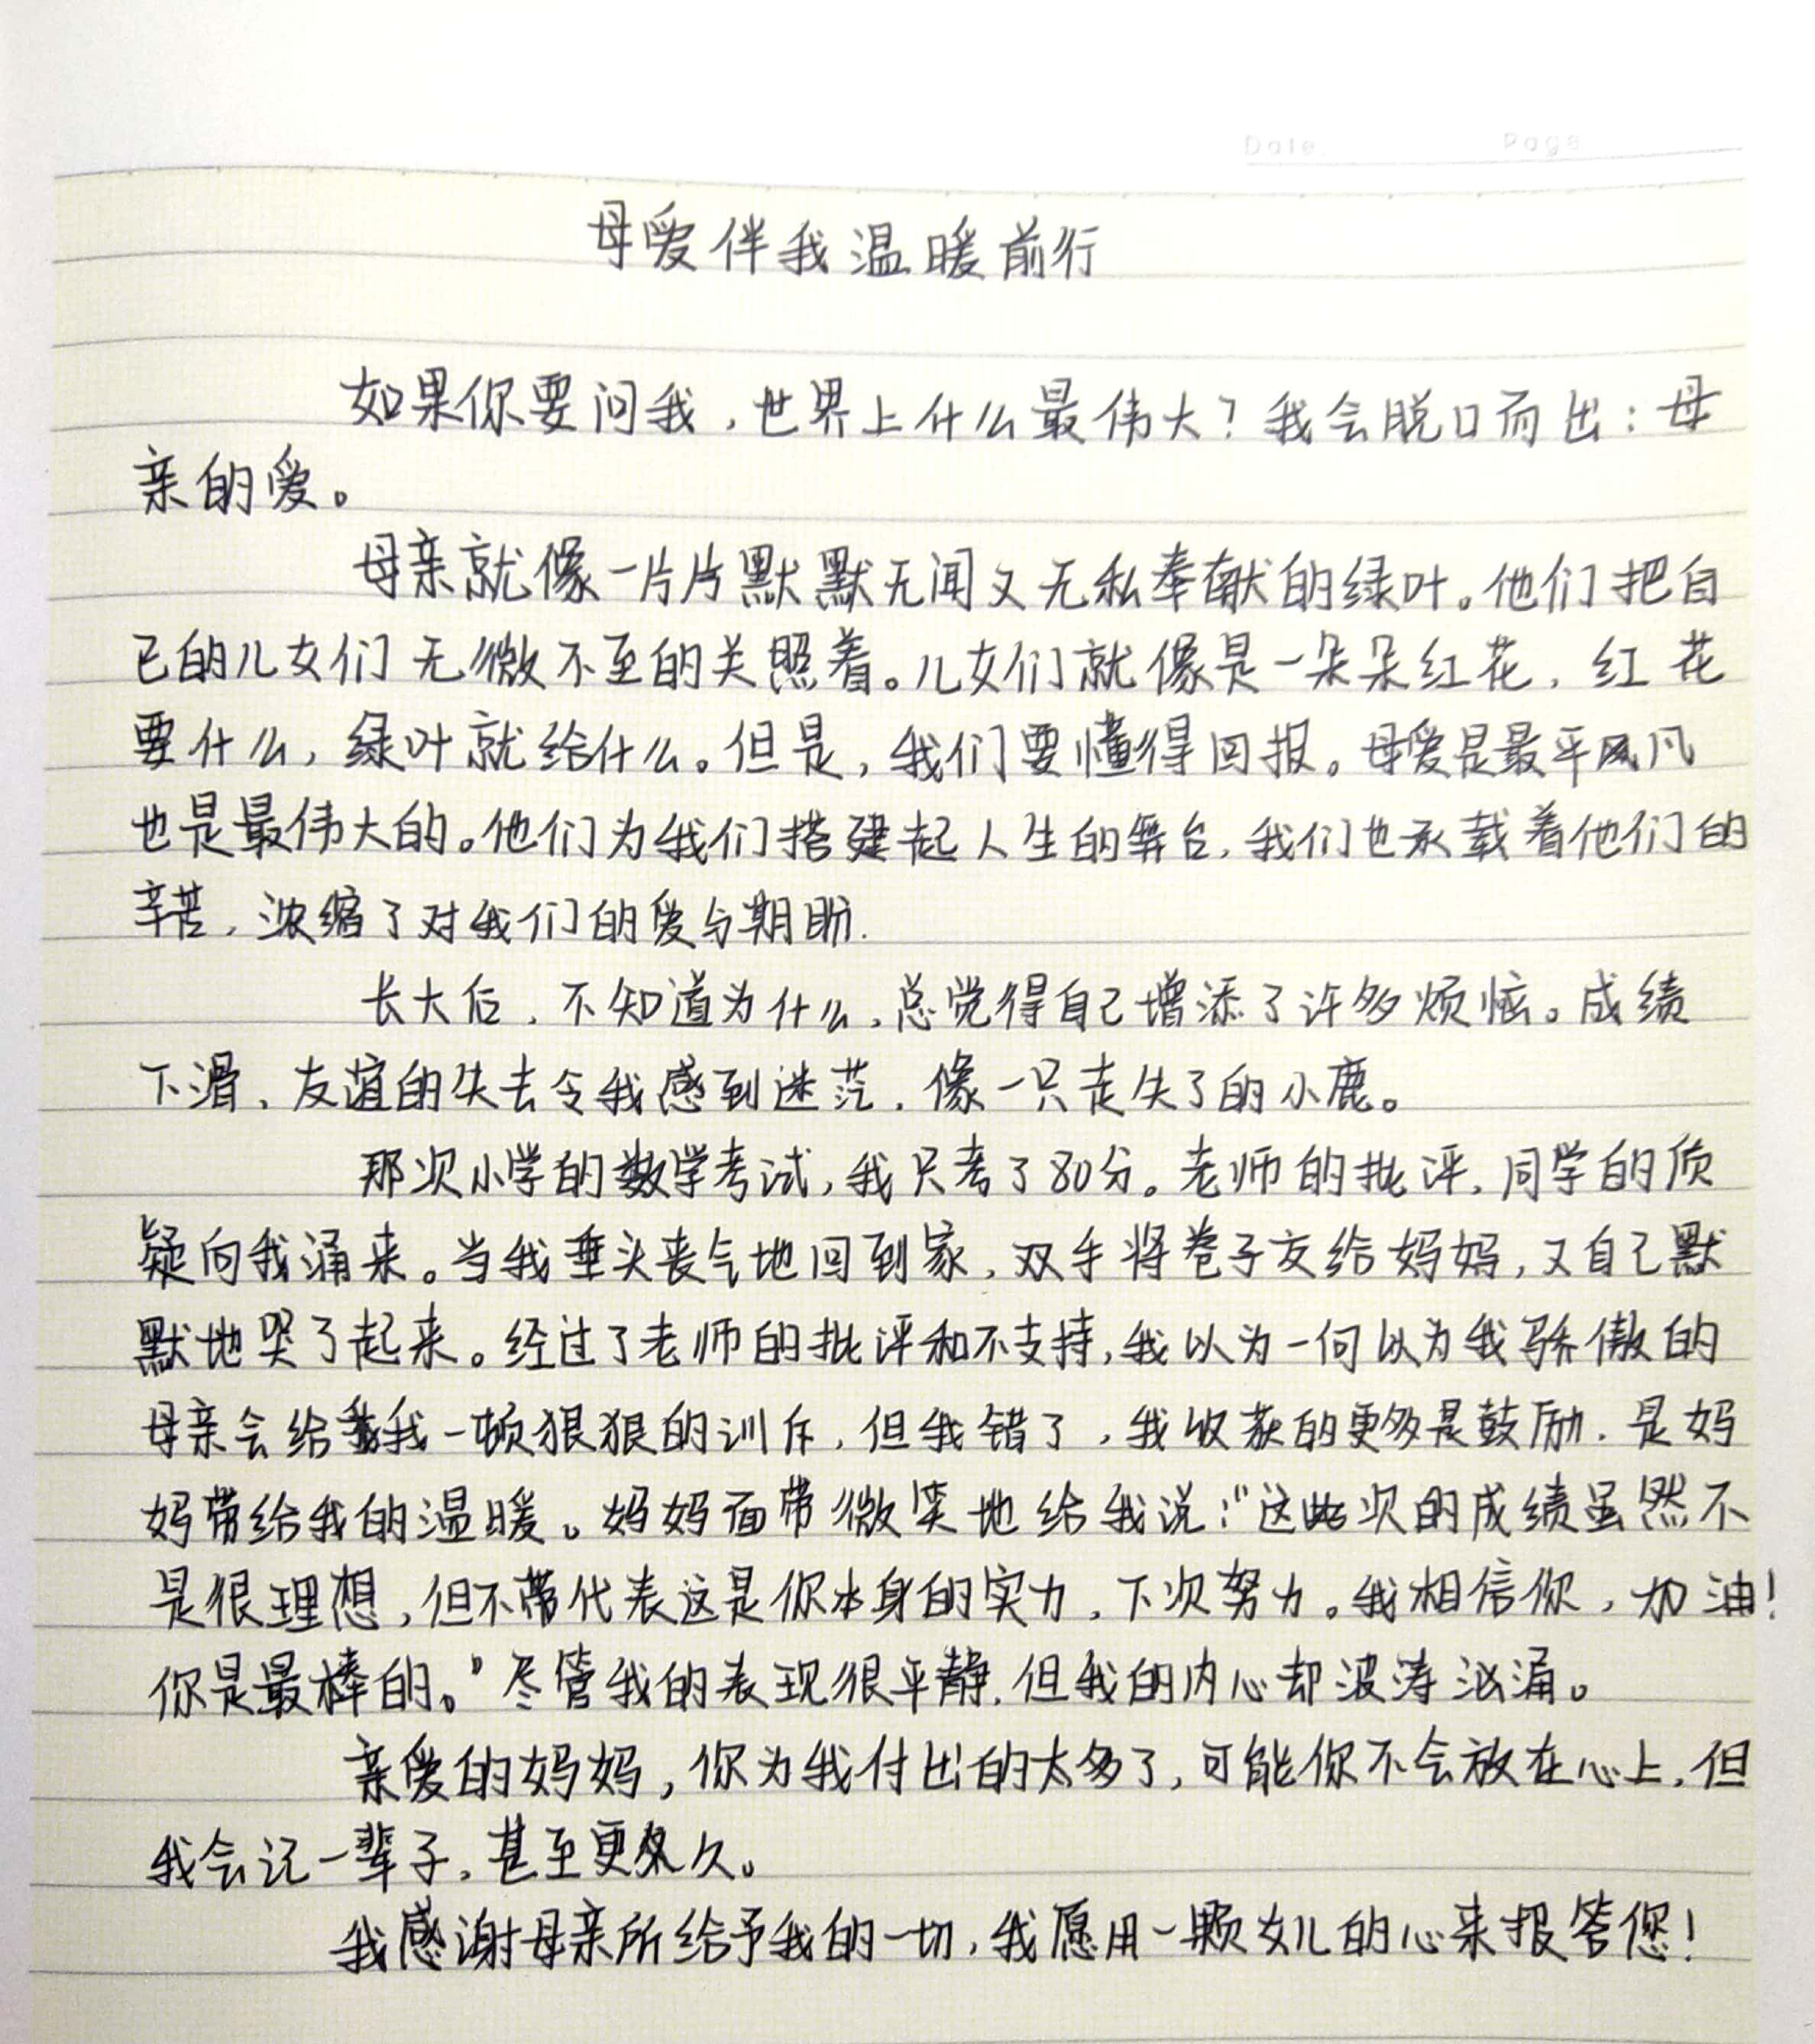 Date. Page
母爱伴我温暖前行
如果你要问我，世界上什么最伟大？我会脱口而出：母
亲的爱。
母亲就像一片片默默无闻又无私奉献的绿叶。他们把自
已的儿女们无微不至的关照着。儿女们就像是一朵朵红花，红花
要什么，绿叶就给什么。但是，我们要懂得回报。母爱是最平凡
也是最伟大的。他们为我们搭建起人生的舞台，我们也承载着他们的
辛苦，浓缩了对我们的爱与期盼.
长大后，不知道为什么，总觉得自己增添了许多烦恼。成绩
下滑、友谊的失去令我感到迷茫，像一只走失了的小鹿。
那次小学的数学考试，我只考了80分。老师的批评，同学的质
疑向我涌来。当我垂头丧气地回到家，双手将卷子交给妈妈，又自己默
默地哭了起来。经过了老师的批评和不支持，我以为一向以为我骄傲的
母亲会给我一顿狠狠的训斥，但我错了，我收获的更多是鼓励，是妈
妈带给我的温暖。妈妈面带微笑地给我说：“这次的成绩虽然不
是很理想，但不代表这是你本身的实力，下次努力。我相信你，加油！
你是最棒的。”尽管我的表现很平静，但我的内心却波涛汹涌。
亲爱的妈妈，你为我付出的太多了，可能你不会放在心上，但
我会记一辈子，甚至更久。
我感谢母亲所给予我的一切，我愿用一颗女儿的心来报答您！